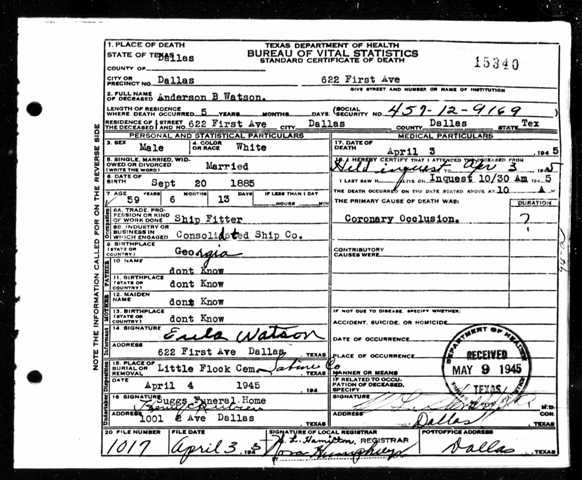 1. PLACE OF DEATH
STATE OF TEXAS Dallas
COUNTY OF
TEXAS DEPARTMENT OF HEALTH
BUREAU OF VITAL STATISTICS
STANDARD CERTIFICATE OF DEATH
15340
CITY OR PRECINCT NO. Dallas
622 First Ave
GIVE STREET AND NUMBER OR NAME OF INSTITUTION
2. FULL NAME OF DECEASED Anderson B Watson.
LENGTH OF RESIDENCE WHERE DEATH OCCURRED 5 YEARS MONTHS DAYS (SOCIAL SECURITY NO. 457-12-9169
RESIDENCE OF THE DECEASED STREET AND NO. 622 First Ave CITY Dallas COUNTY Dallas STATE Tex
PERSONAL AND STATISTICAL PARTICULARS
MEDICAL PARTICULARS
3. SEX Male
4. COLOR OR RACE White
17. DATE OF DEATH April 3 1945
5. SINGLE, MARRIED, WIDOWED OR DIVORCED (WRITE THE WORD) Married
18. I HEREBY CERTIFY THAT I ATTENDED THE DECEASED FROM
Held inquest 3
I LAST SAW ALIVE ON Inquest 10/30 Am 5
6. DATE OF BIRTH Sept 20 1885
THE DEATH OCCURRED ON THE DATE STATED ABOVE AT 10 A M.
7. AGE YEARS MONTHS DAYS IF LESS THAN 1 DAY
59 6 13 HOURS MIN
THE PRIMARY CAUSE OF DEATH WAS:
DURATION
8A. TRADE, PROFESSION OR KIND OF WORK DONE Ship Fitter
Coronary Occlusion. ?
8B. INDUSTRY OR BUSINESS IN WHICH ENGAGED Consolidated Ship Co.
9. BIRTHPLACE (STATE OR COUNTRY) Georgia
CONTRIBUTORY CAUSES WERE:
10. NAME dont Know
11. BIRTHPLACE (STATE OR COUNTRY) dont Know
12. MAIDEN NAME dont Know
13. BIRTHPLACE (STATE OR COUNTRY) dont Know
IF NOT DUE TO DISEASE, SPECIFY WHETHER:
ACCIDENT, SUICIDE, OR HOMICIDE
14. SIGNATURE Watson
DATE OF OCCURRENCE
ADDRESS 622 First Ave Dallas TEXAS
PLACE OF OCCURRENCE
15. PLACE OF BURIAL OR REMOVAL Little Flook Cem Sabine Co TEXAS
MANNER OR MEANS
DATE April 4 1945
IF RELATED TO OCCUPATION OF DECEASED, SPECIFY
16. SIGNATURE Suggs Funeral Home
SIGNATURE M.D.
ADDRESS 1001 Ave Dallas TEXAS
ADDRESS Dallas TEXAS
DEPARTMENT OF HEALTH
RECEIVED
MAY 9 1945
TEXAS
20. FILE NUMBER 1017
FILE DATE April 3
SIGNATURE OF LOCAL REGISTRAR
J. L. Hamilton, REGISTRAR
Nora Humphreys
POSTOFFICE ADDRESS
Dallas TEXAS
NOTE THE INFORMATION CALLED FOR ON THE REVERSE SIDE
Occupation
FATHER
MOTHER
Informant
Disposition
Undertaker